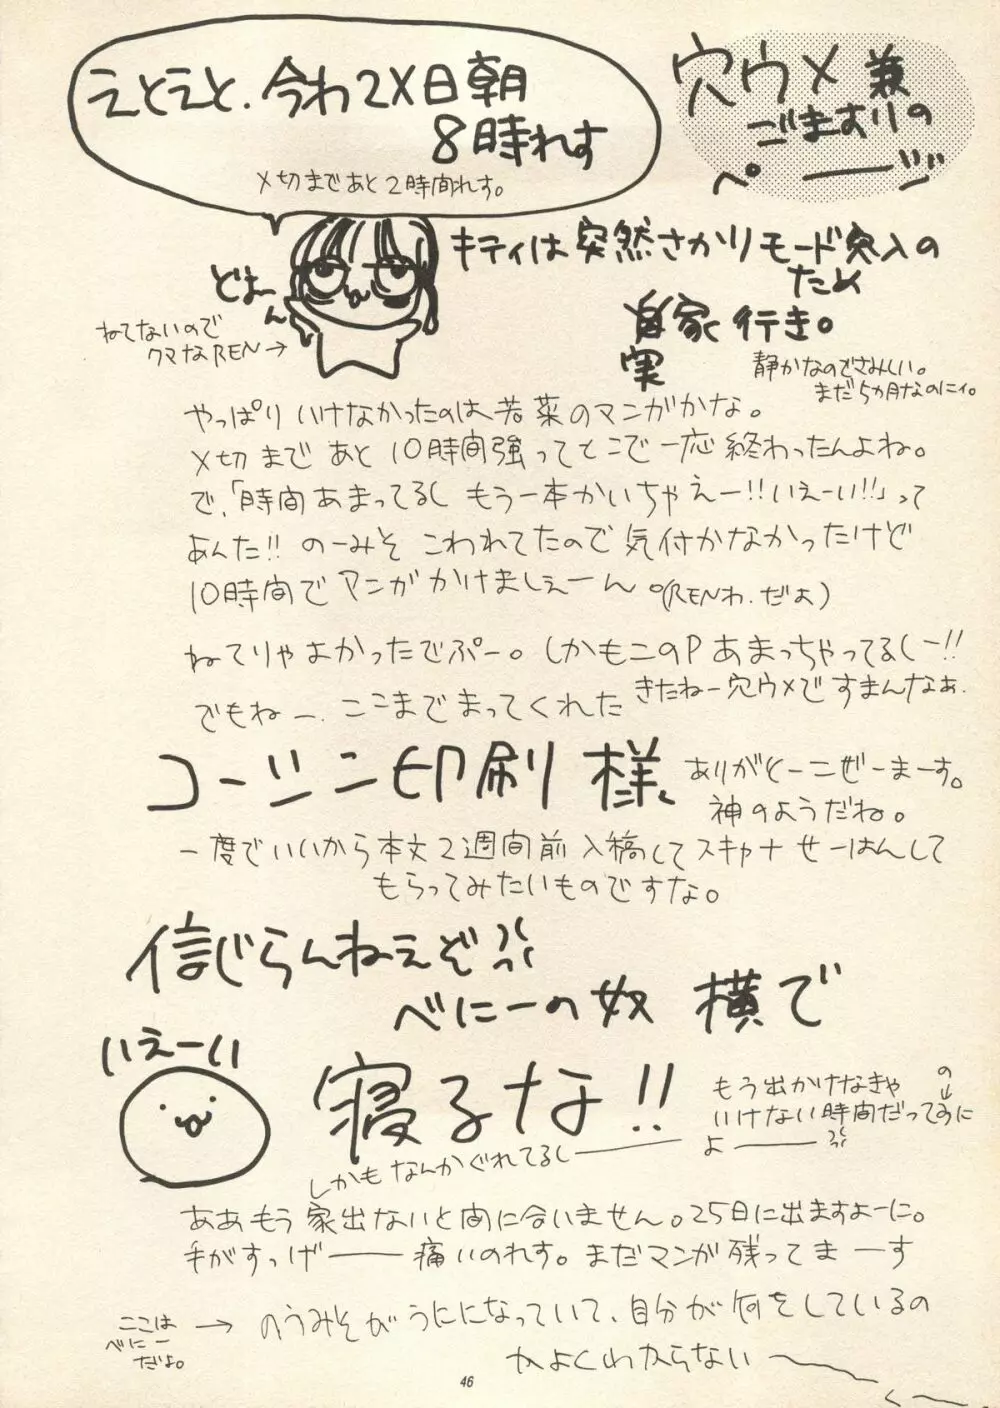 えとえと、今わ2X日朝
8時れす
〆切まであと2時間れす。
穴ウメ兼
ごますりの
ページ
キティは突然さかりモード突入の
ため
実家行き。
静かなのでさみしい。
まだ5カ月なのにィ。
どよーん
ねてないので
クマなREN→
やっぱりいけなかったのは若菜のマンガかな。
〆切まであと10時間強ってとこで一応終わったんよね。
で、「時間あまってるしもう一本かいちゃえー!!いえーい!!」って
あんた!!のーみそこわれてたので気付かなかったけど
10時間でマンガかけましぇーん。(RENわ.だよ)
ねてりゃよかったでぷー。しかもこのPあまっちゃってるしー!!
きたねー穴ウメですまんなぁ.
でもねー、ここまでまってくれた
コーシン印刷様、
ありがとーこぜーまーす。
神のようだね。
一度でいいから本文2週間前入稿してスキャナせーはんして
もらってみたいものですな。
信じらんねえぞ
べにーの奴横で
いえーい
寝るな!!
もう出かけなきゃ
いけない時間だってのに
よー
しかもなんかぐれてるしー
ああもう家出ないと間に合いません。25日に出ますよーに。
手がすっげー痛いのれす。まだマンガ残ってまーす
ここは
べにー
だよ。
→のうみそがうにになっていて、自分が何をしているの
かよくわからない〜
46